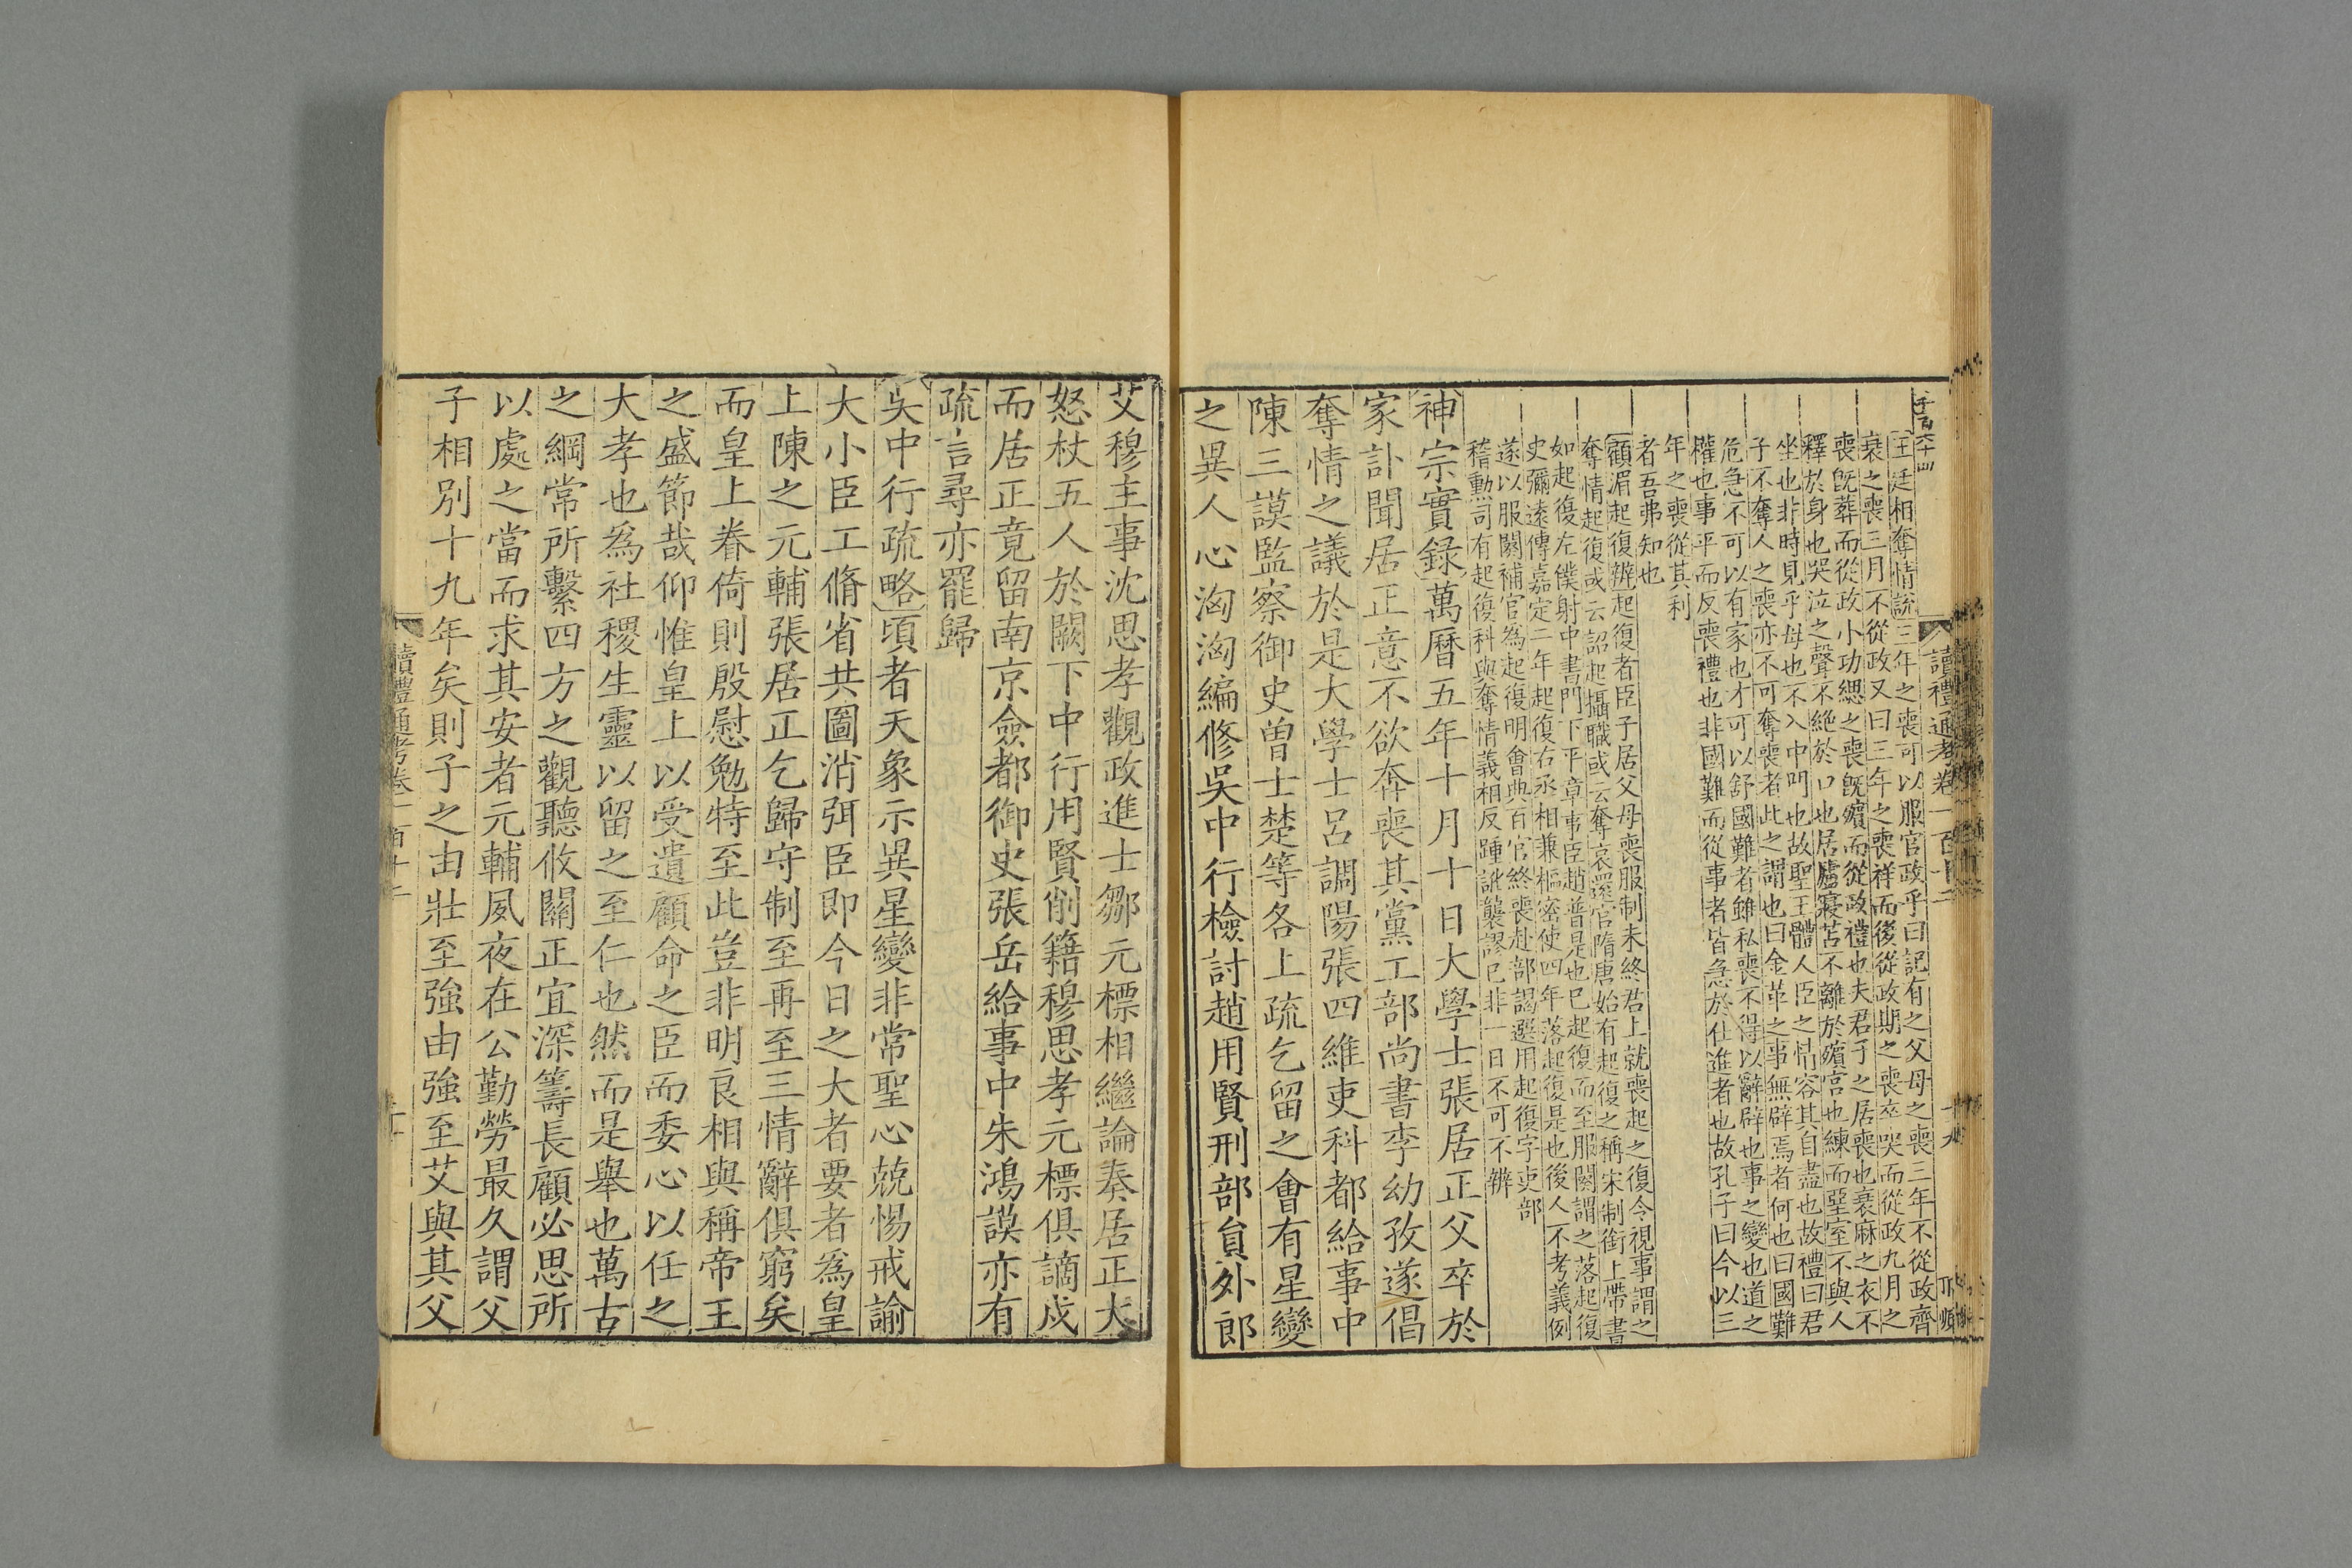 讀禮通考卷一百十二
十九
王廷相奪情說三年之喪可以服官政乎曰記有之父母之喪三年不從政齊
衰之喪三月不從政又曰三年之喪祥而後從政期之喪卒哭而從政九月之
喪既葬而從政小功緦之喪既殯而從政禮也夫君子之居喪也衰麻之衣不
釋於身也哭泣之聲不絶於口也居廬寢苫不離於殯宫也練而堊室不與人
坐也非時見乎母也不入中門也故聖王體人臣之情容其自盡也故禮曰君
子不奪人之喪亦不可奪喪者此之謂也曰金革之事無辟焉者何也曰國難
危急不可以有家也才可以舒國難者雖私喪不得以辭辟也事之變也道之
權也事平而反喪禮也非國難而從事者皆急於仕進者也故孔子曰今以三
年之喪從其利
者吾弗知也
顧湄起復辨起復者臣子居父母喪服制未終君上就喪起之復令視事謂之
奪情起復或云詔起攝職或云奪哀還官隋唐始有起復之稱宋制銜上帶書
如起復左僕射中書門下平章事臣趙普是也已起復而至服闋謂之落起復
史彌遠傳嘉定二年起復右丞相兼樞密使四年落起復是也後人不考義例
遂以服闋補官為起復明會典百官終喪赴部謁選用起復字吏部
稽勲司有起復科與奪情義相反踵訛襲謬已非一日不可不辨
神宗實録萬曆五年十月十日大學士張居正父卒於
家訃聞居正意不欲奔喪其黨工部尚書李幼孜遂倡
奪情之議於是大學士呂調陽張四維吏科都給事中
陳三謨監察御史曾士楚等各上疏乞留之會有星變
之異人心洶洶編修吳中行檢討趙用賢刑部負外郎
艾穆主事沈思孝觀政進士鄒元標相繼論奏居正大
怒杖五人於闕下中行用賢削籍穆思孝元標俱謫戍
而居正竟留南京僉都御史張岳給事中朱鴻謨亦有
疏言尋亦罷歸
吳中行疏略頃者天象示異星變非常聖心兢惕戒諭
大小臣工脩省共圖消弭臣即今日之大者要者爲皇
上陳之元輔張居正乞歸守制至再至三情辭俱窮矣
而皇上眷倚則殷慰勉特至此豈非明良相與稱帝王
之盛節哉仰惟皇上以受遺顧命之臣而委心以任之
大孝也爲社稷生靈以留之至仁也然而是舉也萬古
之綱常所繫四方之觀聽攸關正宜深籌長顧必思所
以處之當而求其安者元輔夙夜在公勤勞最久謂父
子相別十九年矣則子之由壯至強由強至艾與其父
讀禮通考卷一百十二